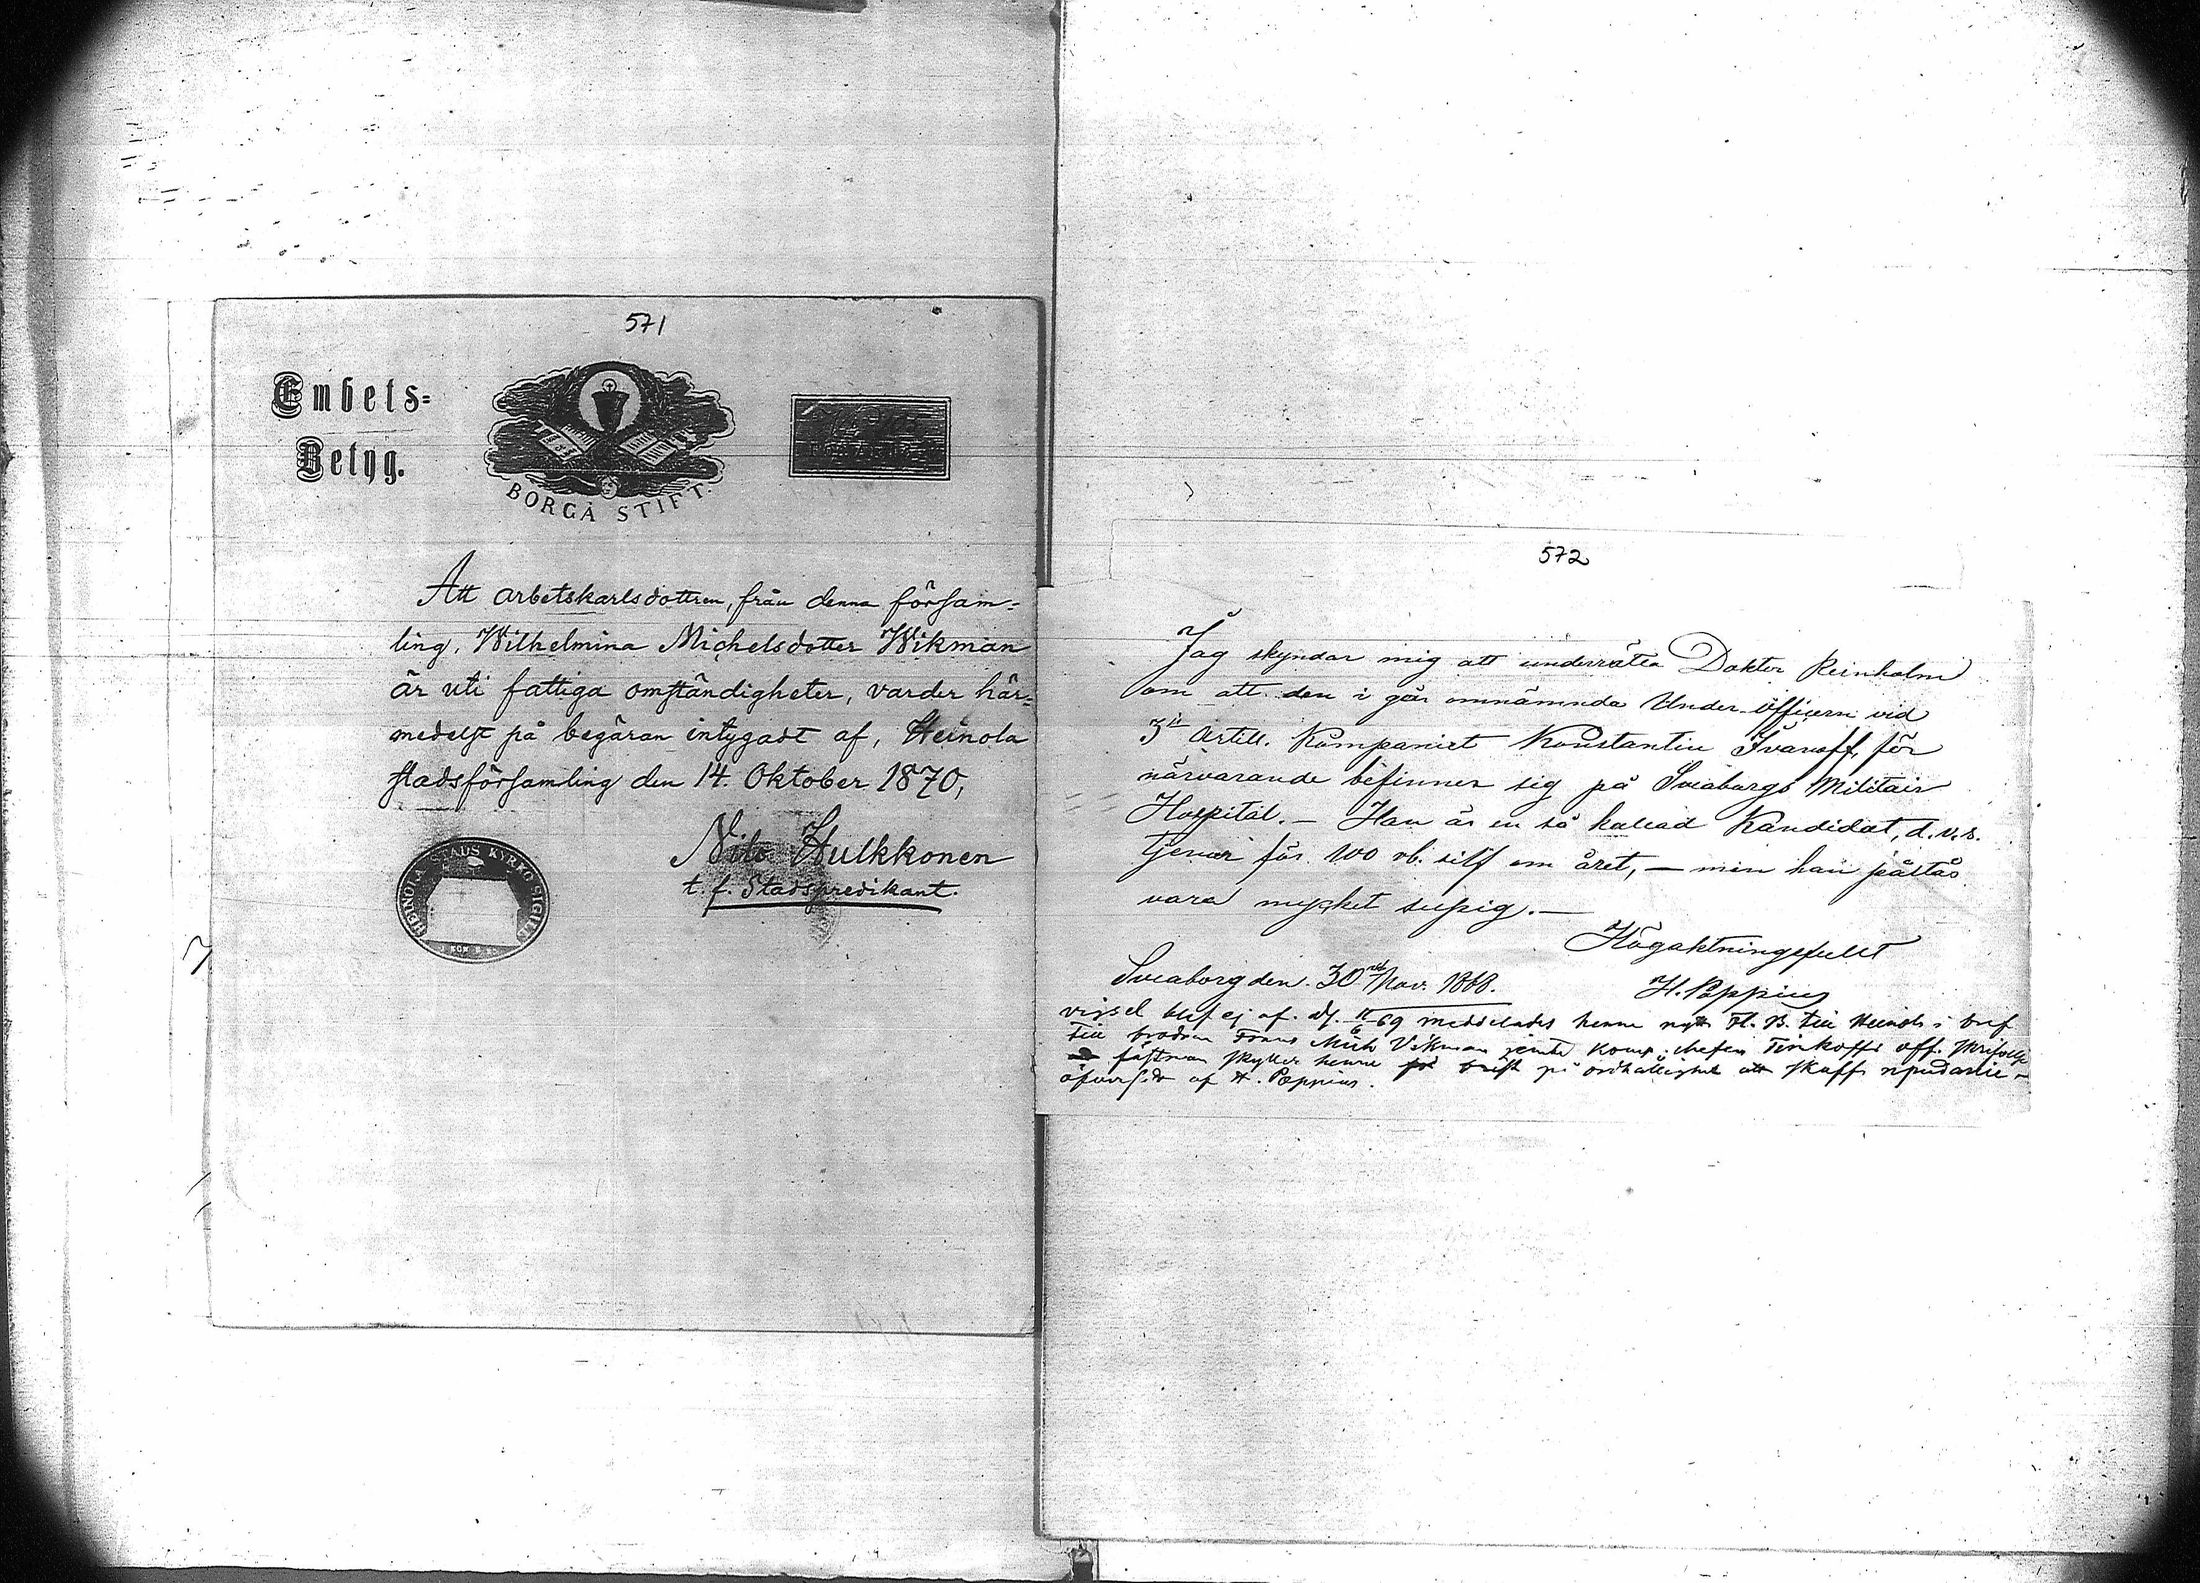 571
Embets=
Betyg.
BORGÅ STIFT.
Att arbetskarlsdottren, från denna försam=
ling, Wilhelmina Michelsdotter Wikman
är uti fattiga omständigheter, varder här=
medelst på begäran intygadt af, Heinola
stadsförsamling den 14. Oktober 1870,
Nils Hulkkonen
t. f. Stadspredikant.
HEINOLA STADS KYRKO SIGILL
572
Jag skyndar mig att underrätta Doktor Reinholm
om att den i går omnämnda Under-Officern vid
3je Artill. Kompaniet Konstantin Ivanoff, för
närvarande befinner sig på Sveaborgs Militair
Hospital. — Han är en så kallad Kandidat, d.v.s.
tjenar för 100 rb. silf om året, — men han påstås
vara mycket supig. —
Högaktningsfullt
Sveaborg den 30 Nov. 1868.
H. Poppius
vigsel blef ej af. d. 69 meddelades henne i bref
till brodren Frans Mich Vikman jemte Komp. chefen Tinkoffs off. skrifvelse
fästman skyller henne på
öfversatt af H. Poppius.